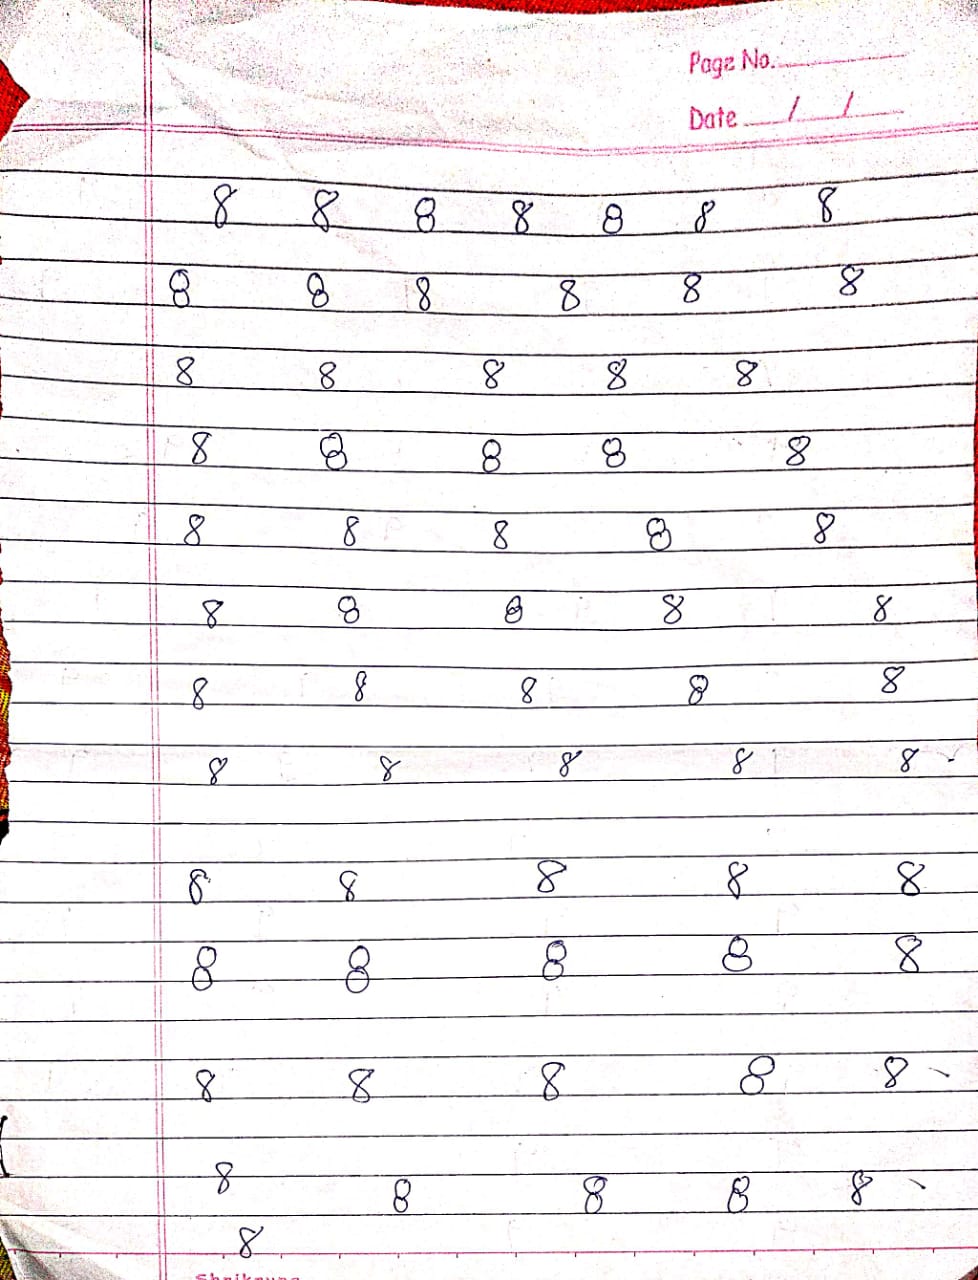 Page No.
Date / /
8 8 8 8 8 8 8
8 8 8 8 8 8
8 8 8 8 8
8 8 8 8 8
8 8 8 8 8
8 8 8 8 8
8 8 8 8 8
8 8 8 8 8
8 8 8 8 8
8 8 8 8 8
8 8 8 8 8
8 8 8 8 8
8